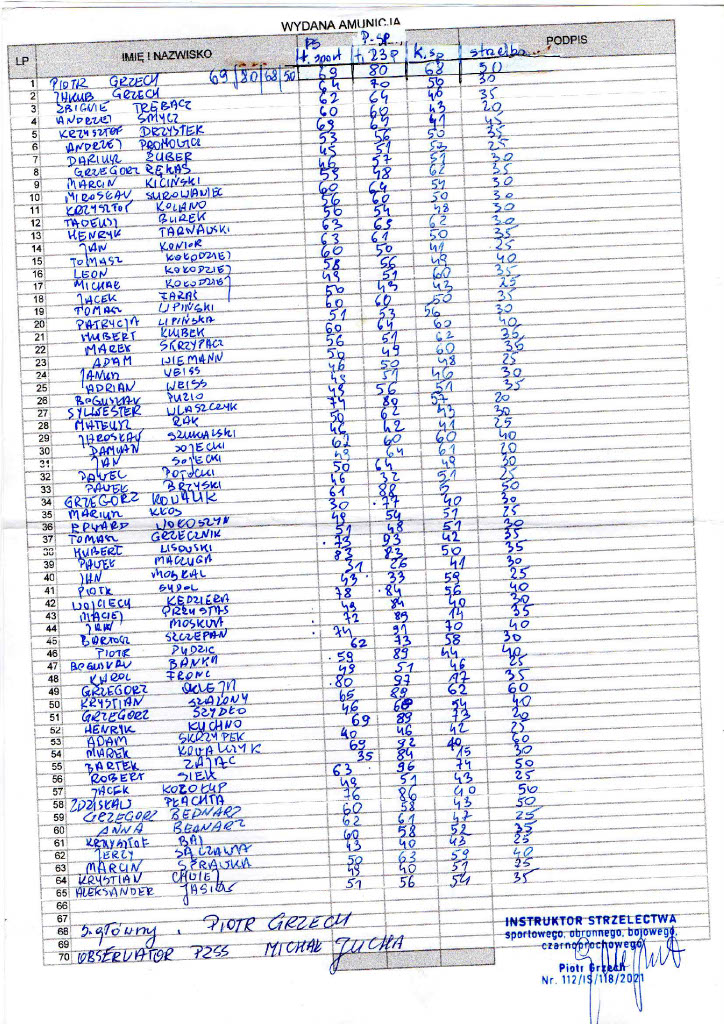 WYDANA AMUNICJA
LP IMIĘ I NAZWISKO PS t. sport P-sp. t. 23p k. sp strzelba PODPIS
1 PIOTR GRZECH 69/80/68/50 69 80 68 50
2 JAKUB GRZECH 64 70 56 30
3 ZBIGNIE TRĘBACZ 62 64 46 35
4 ANDRZEJ SMYCZ 60 60 43 20
5 KRZYSZTOF DRZYSTEK 69 67 41 45
6 ANDRZEJ 53 56 50 35
7 DARIUSZ ŻUBER 45 51 53 25
8 GRZEGORZ RĘKAS 46 57 51 30
9 MARCIN KICIŃSKI 53 48 62 35
10 MIROSŁAW SUROWANIEC 60 64 54 30
11 KRZYSZTOF KOLANO 56 60 50 30
12 TADEUSZ BUREK 50 54 48 30
13 HENRYK TARNAWSKI 63 65 62 30
14 JAN KONIOR 63 61 50 35
15 TOMASZ KOŁODZIEJ 60 50 41 25
16 LEON KOŁODZIEJ 58 56 49 40
17 MICHAŁ KOŁODZIEJ 49 51 60 35
18 JACEK ZARAŚ 50 49 42 25
19 TOMASZ LIPIŃSKI 60 60 50 35
20 PATRYCJA LIPIŃSKA 51 53 56 30
21 HUBERT KUBEK 60 64 60 40
22 MAREK SKRZYPACZ 56 51 62 35
23 ADAM WIEMANN 50 49 60 30
24 JANUSZ WEISS 46 50 48 25
25 ADRIAN WEISS 48 51 46 30
26 BOGUSŁAW PUZIO 48 56 51 35
27 SYLWESTER WLASZCZYK 74 80 57 20
28 MATEUSZ RAK 50 62 43 30
29 JAROSŁAW SZUKALSKI 46 42 41 25
30 DAMIAN SOJECKI 62 60 60 40
31 JAN SOJECKI 49 64 61 20
32 PAWEŁ POTOCKI 50 64 49 30
33 PAWEŁ BRZYSKI 46 32 51 25
34 GRZEGORZ KOWALIK 61 88 50
35 MARIUSZ KŁOS 30 77 40 30
36 EDWARD WOKOSZYN 49 54 51 25
37 TOMASZ GRZECZNIK 51 48 51 30
38 HUBERT LISOWSKI 73 93 42 35
39 PAWEŁ MACZUGA 83 83 50 35
40 JAN MOSKAL 31 26 41 30
41 PIOTR SUDOŁ 43 33 59 25
42 WOJCIECH KĘDZIERA 78 84 56 40
43 MACIEJ PRZYSTAŚ 49 84 40 30
44 JAN MOSKWA 72 89 14 35
45 BARTOSZ SZCZEPAN 74 91 70 40
46 PIOTR DUDZIC 62 73 58 30
47 BOGUSŁAW BANKA 59 89 44 40
48 KAROL FRONC 49 51 46 25
49 GRZEGORZ 80 97 17 35
50 KRYSTIAN SZALONY 65 89 62 60
51 GRZEGORZ SZYDŁO 46 60 54 40
52 HENRYK KUCHNO 69 89 73 20
53 ADAM SKRZYPEK 40 46 42 25
54 MAREK KOWALCZYK 69 92 40 60
55 BARTEK ZAJĄC 35 84 15 30
56 ROBERT SIEK 63 96 74 50
57 JACEK KOZOKUP 49 51 43 25
58 ZDZISŁAW PŁACHTA 76 86 40 50
59 GRZEGORZ BEDNARZ 60 58 43 50
60 ANNA BEDNARZ 62 61 47 25
61 KRZYSZTOF BAJ 60 58 52 35
62 JERZY 43 40 43 25
63 MARCIN SPRAWKA 50 63 59 40
64 KRYSTIAN 49 40 51 25
65 ALEKSANDER 51 56 54 35
66
67
68 S. główny. PIOTR GRZECH
69
70 OBSERWATOR PZSS MICHAŁ JUCHA
INSTRUKTOR STRZELECTWA
sportowego, obronnego, bojowego,
czarnoprochowego
Piotr Grzech
Nr. 112/IS/118/2021